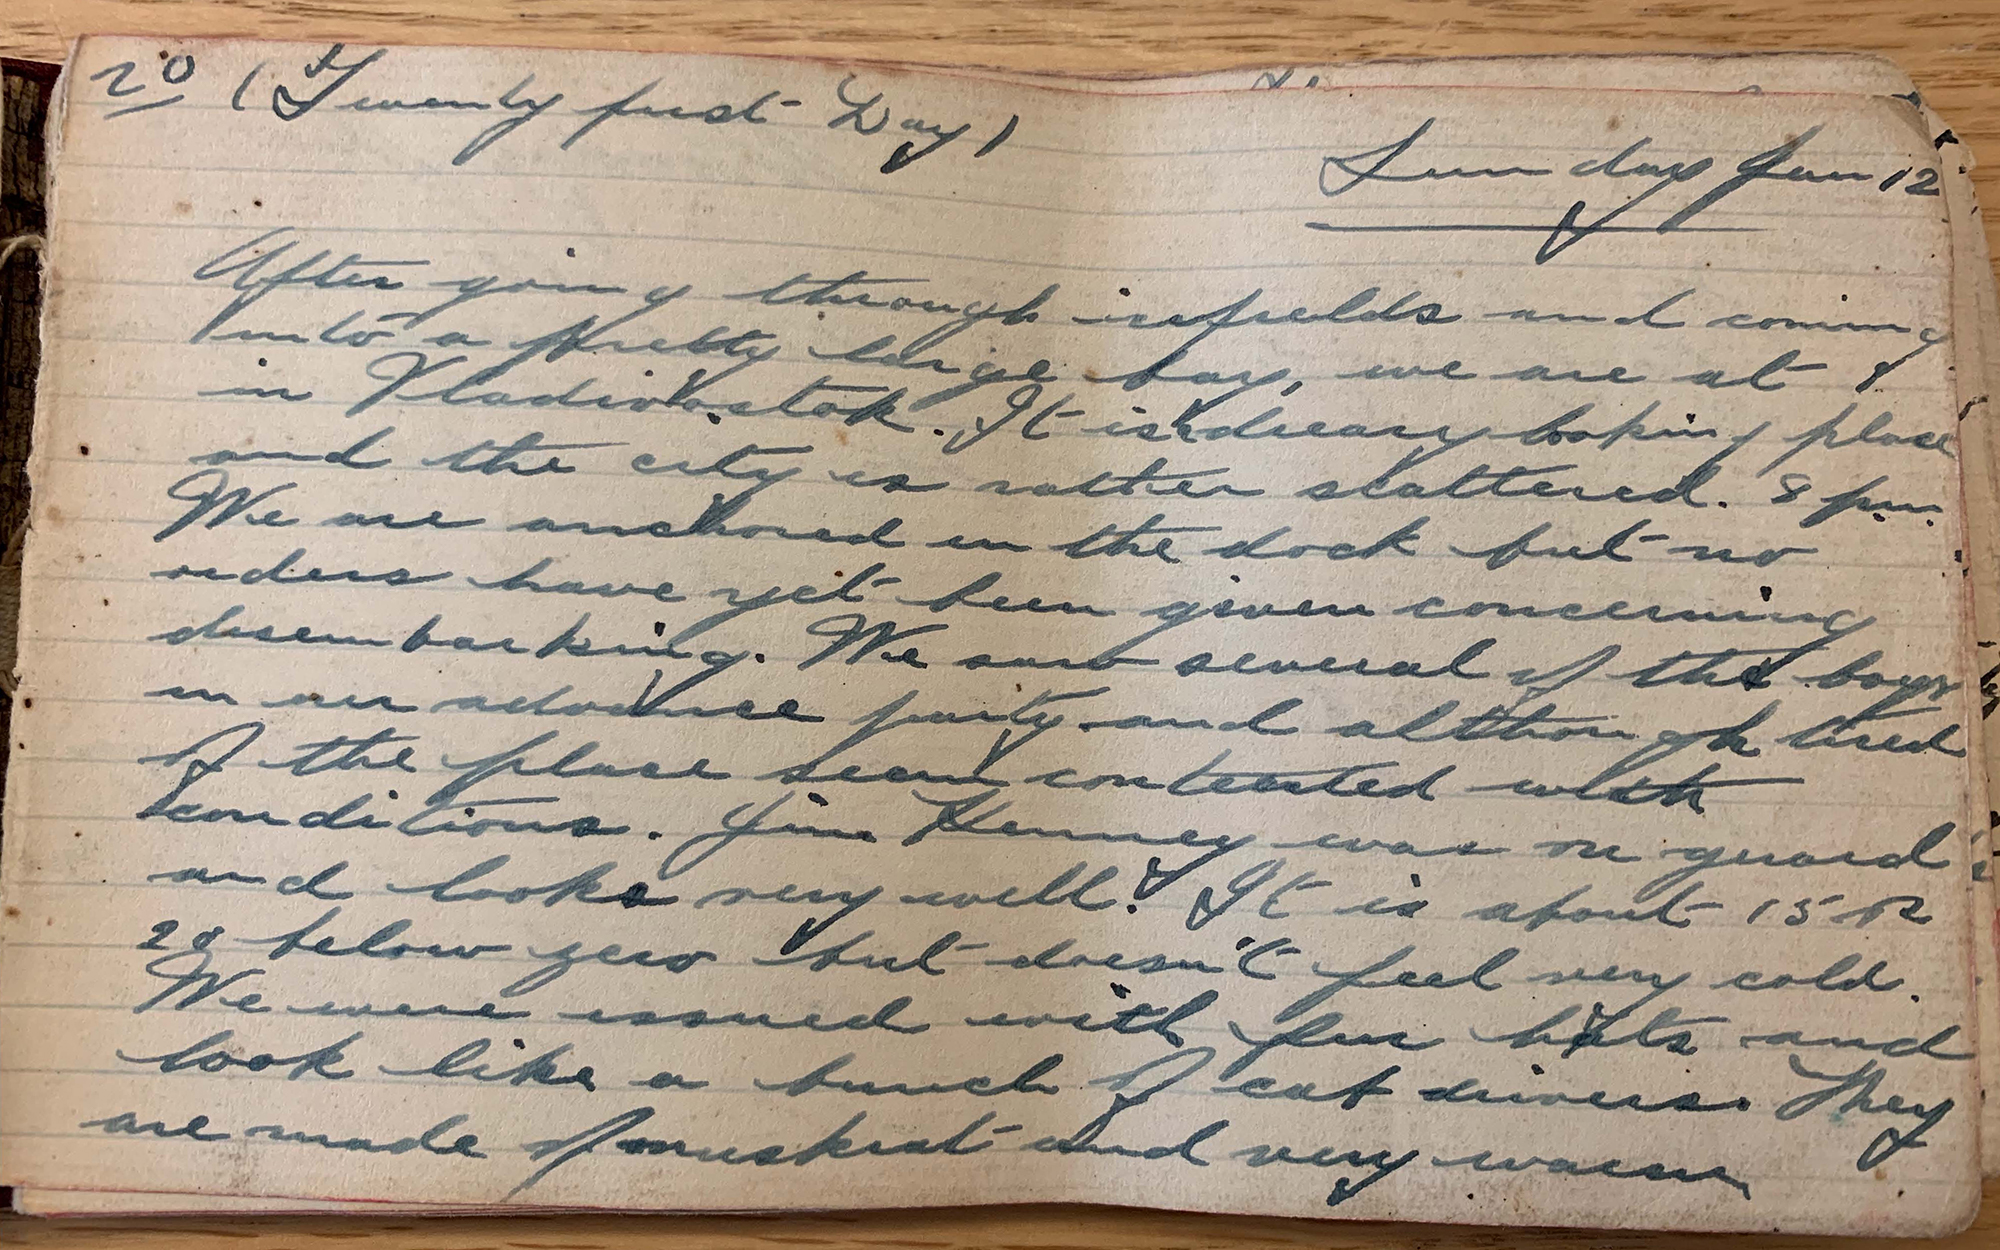 20 (Twenty first Day)
Sunday Jan 12
After going through icefields and coming
into a pretty large bay, we are at
in Vladivostok. It is dreary looking place
and the city is rather scattered. 8 p.m.
We are anchored in the dock but no
orders have yet been given concerning
disembarking. We saw several of the boys
in our advance party and although tired
of the place seem contented with
conditions. Jim Kenney was on guard
and looks very well. It is about 15 or
20 below zero but doesn't feel very cold.
We were issued with fur hats and
look like a bunch of cab drivers. They
are made of muskrat and very warm